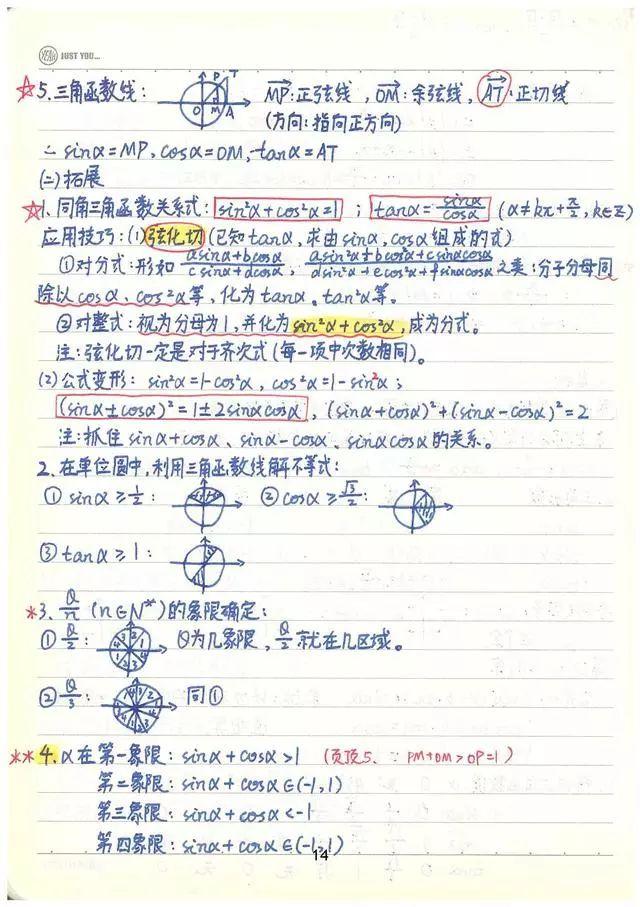 YEAH JUST YOU...
☆5.三角函数线: P T O M A MP:正弦线,OM:余弦线,AT:正切线
(方向:指向正方向)
∴ sinα=MP, cosα=OM, tanα=AT
(二)拓展
☆1.同角三角函数关系式: sin²α+cos²α=1 ; tanα=sinα/cosα (α≠kπ+π/2, k∈Z)
应用技巧:(1)弦化切(已知tanα,求由sinα,cosα组成的式)
①对分式:形如 (asinα+bcosα)/(csinα+dcosα), (asin²α+bcos²α+csinαcosα)/(dsin²α+ecos²α+fsinαcosα) 之类:分子分母同
除以cosα、cos²α等,化为tanα。tan²α等。
②对整式:视为分母为1,并化为sin²α+cos²α,成为分式。
注:弦化切一定是对于齐次式(每一项中次数相同)。
(2)公式变形: sin²α=1-cos²α, cos²α=1-sin²α;
(sinα±cosα)²=1±2sinαcosα, (sinα+cosα)²+(sinα-cosα)²=2
注:抓住sinα+cosα、sinα-cosα、sinαcosα的关系。
2.在单位圆中,利用三角函数线解不等式:
①sinα≥1/2: ②cosα≥√3/2:
③tanα≥1:
*3. θ/n (n∈N*)的象限确定:
①θ/2: θ为几象限,θ/2就在几区域。
②θ/3: 同①
**4.α在第一象限: sinα+cosα>1 (页顶5、∵PM+OM>OP=1)
第二象限: sinα+cosα∈(-1,1)
第三象限: sinα+cosα<-1
第四象限: sinα+cosα∈(-1,1)
14